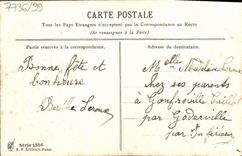 7736/99
CARTE POSTALE
Tous les Pays Etrangers n'acceptent pas la Correspondance au Recto
(Se renseigner à la Poste)
Partie réservée à la correspondance.
Adresse du destinataire.
Bonne fête et
bonheur
Berthe
Melle
chez ses parents
à Gonfreville Caillot
par Goderville
Seine Inférieure
Série 1256